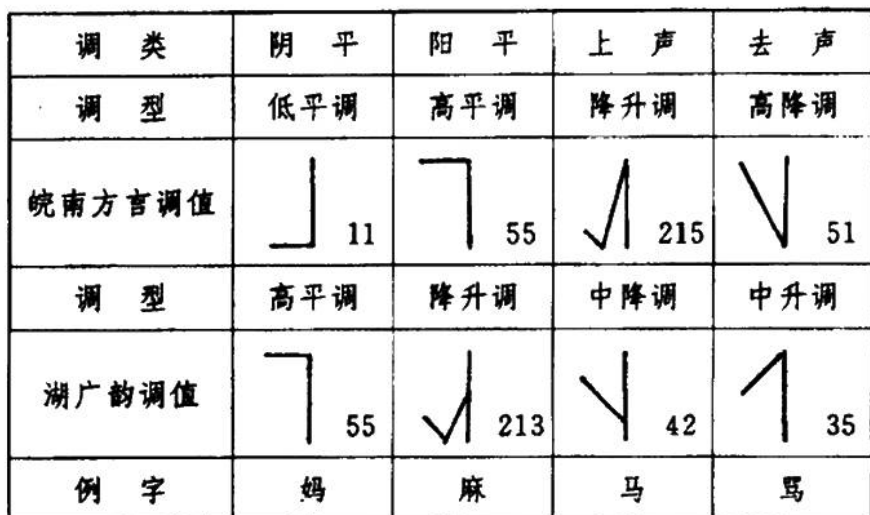 调 类 阴 平 阳 平 上 声 去 声
调 型 低平调 高平调 降升调 高降调
皖南方言调值 11 55 215 51
调 型 高平调 降升调 中降调 中升调
湖广韵调值 55 213 42 35
例 字 妈 麻 马 骂